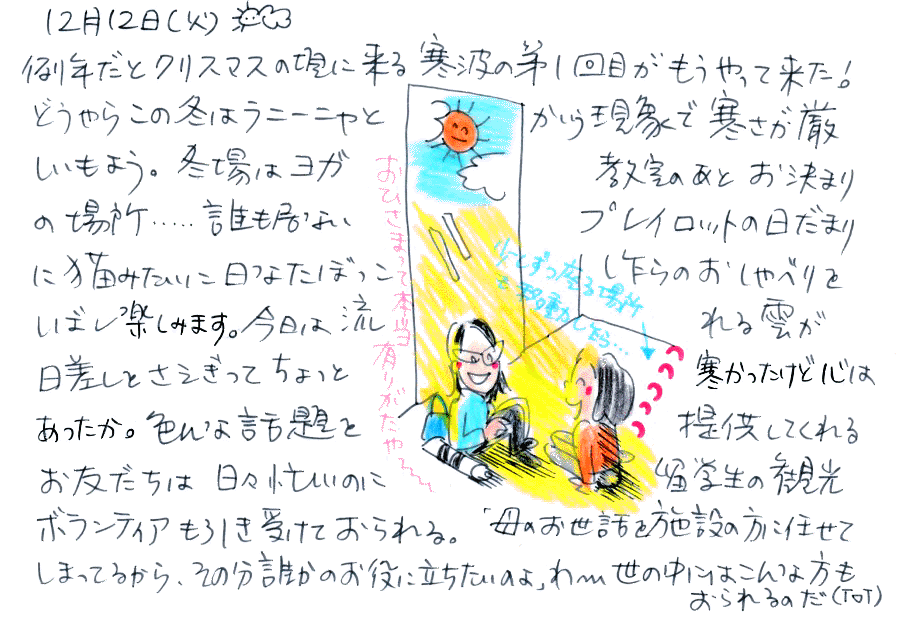 12月12日(火)
例年だとクリスマスの頃に来る寒波の第1回目がもうやって来た!
どうやらこの冬はラニーニャとかいう現象で寒さが厳
しいもよう。冬場はヨガ教室のあとお決まり
の場所.....誰も居ないプレイロットの日だまり
に猫みたいに日なたぼっこし乍らのおしゃべりを
しばし楽しみます。今日は流れる雲が
日差しをさえぎってちょっと寒かったけど心は
あったか。色んな話題を提供してくれる
お友だちは日々忙しいのに留学生の観光
ボランティアも引き受けておられる。「母のお世話を施設の方に任せて
しまってるから、その分誰かのお役に立ちたいのよ」わ〜世の中にはこんな方も
おられるのだ(TOT)
おひさまって本当有りがたやぁ〜
少しずつ座る場所
も移動し乍ら...